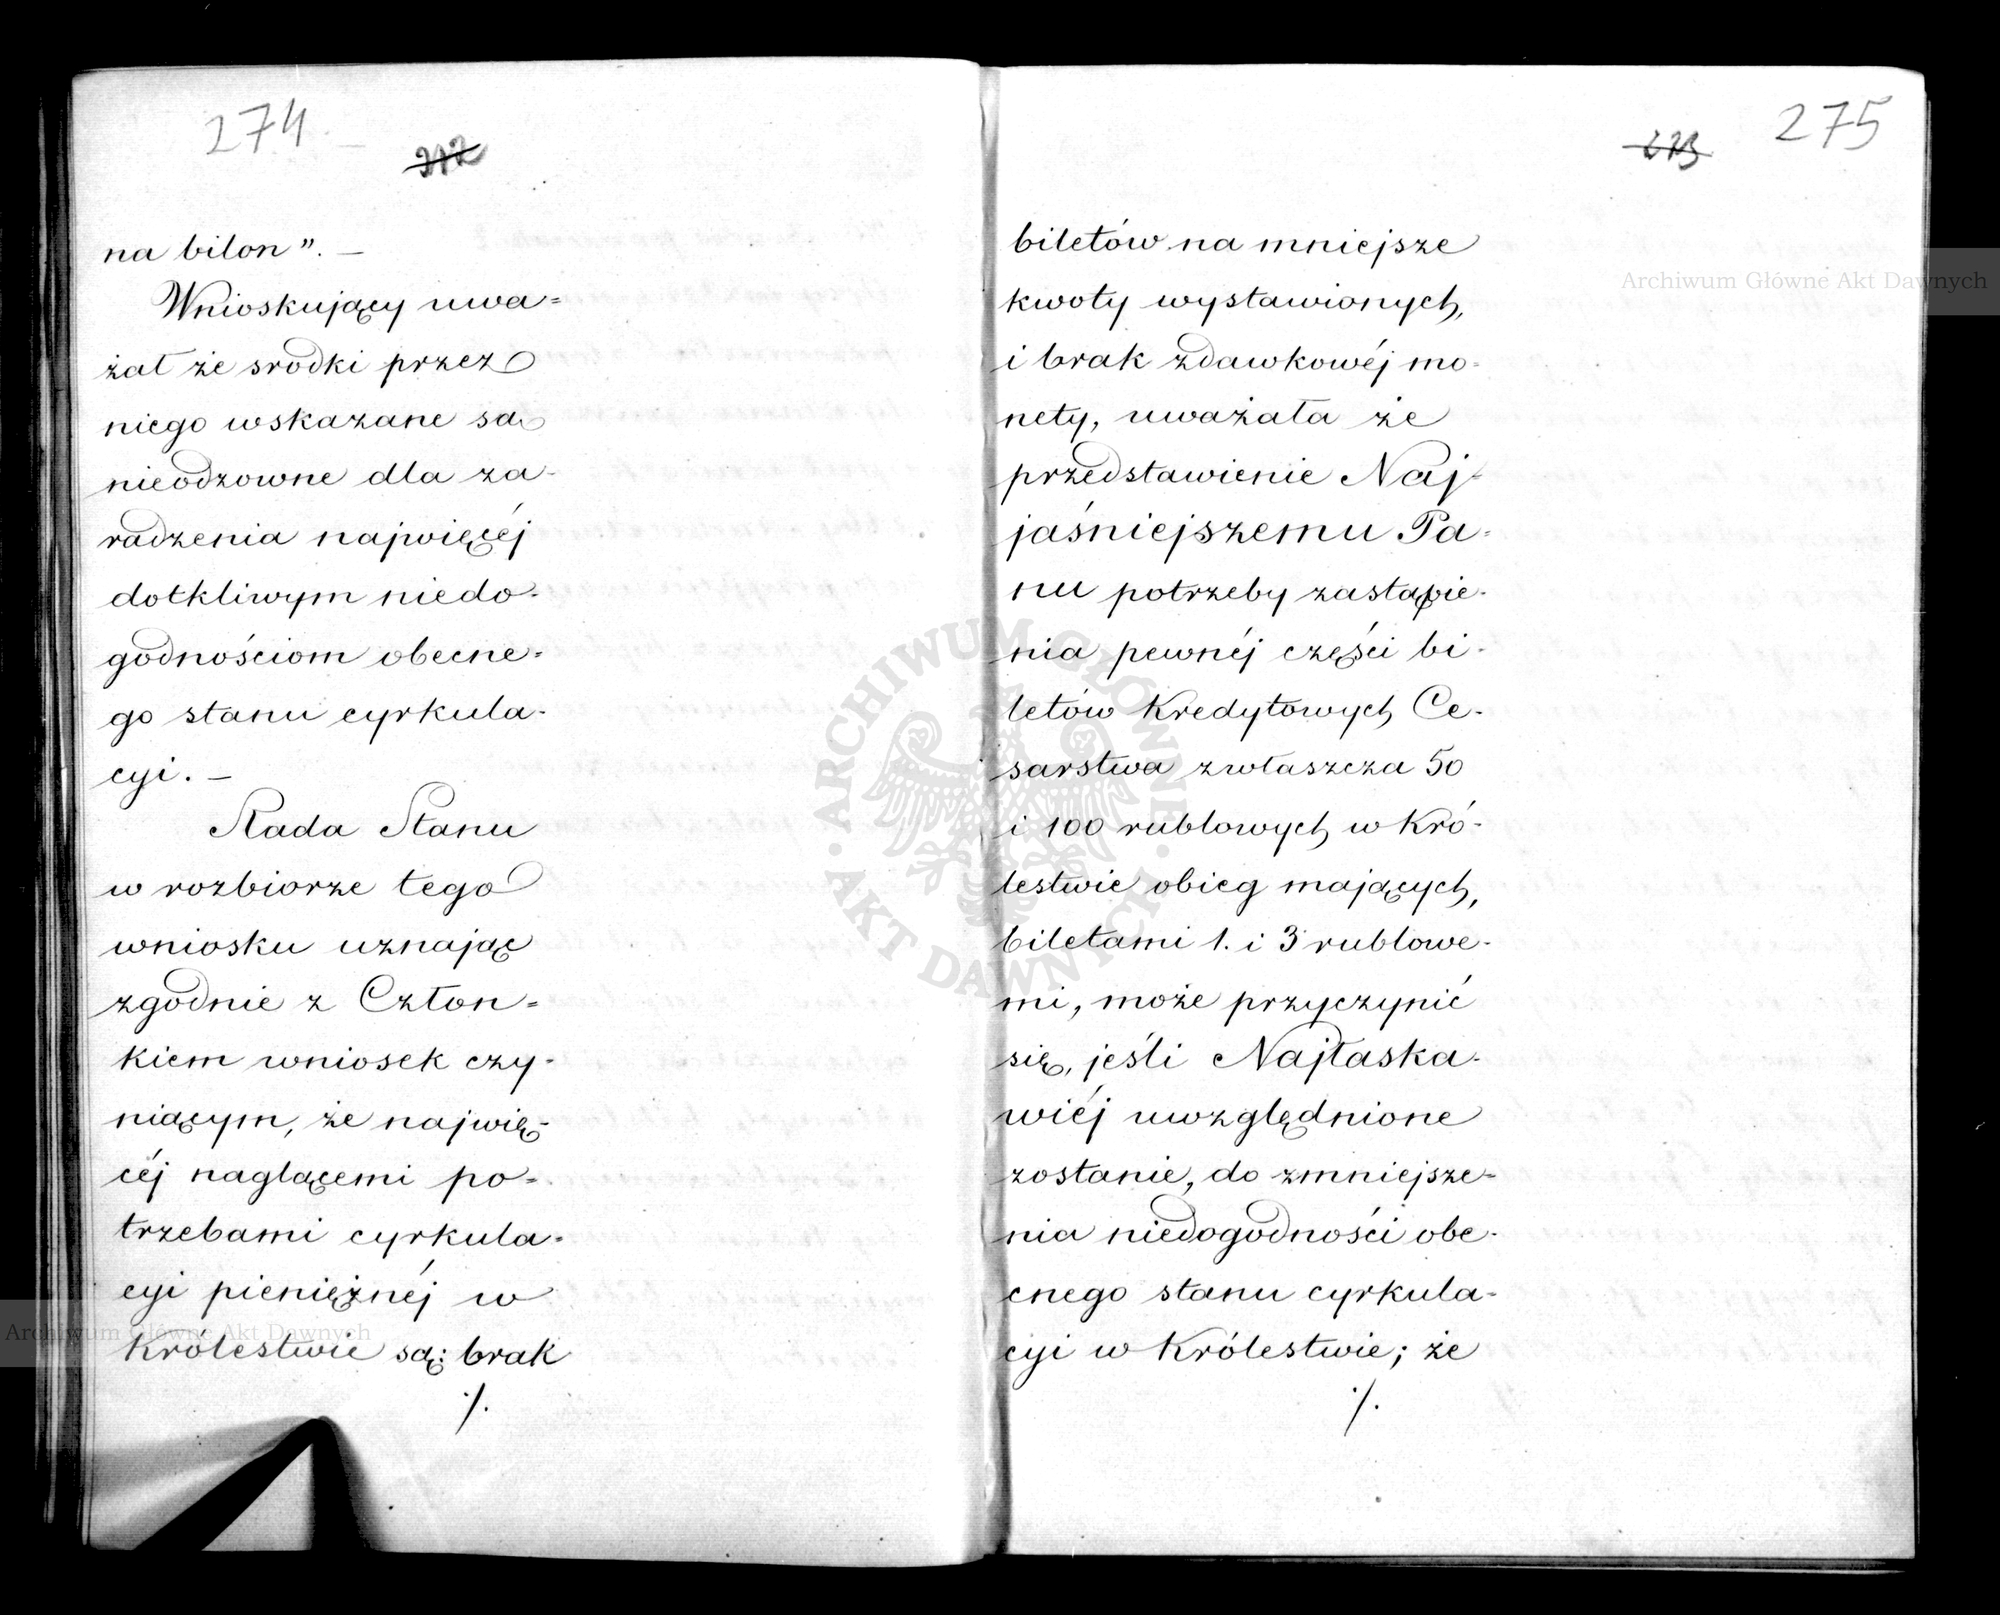 274
272
na bilon". —
Wnioskujący uwa=
żał że srodki przez
niego wskazane są
nieodzowne dla za-
radzenia najwięcéj
dotkliwym niedo-
godnościom obecne-
go stanu cyrkula-
cyi. —
Rada Stanu
w rozbiorze tego
wniosku uznając
zgodnie z Człon=
kiem wniosek czy-
niącym, że najwię-
céj naglącemi po-
trzebami cyrkula-
cyi pieniężnéj w
Królestwie są: brak
./.
275
273
biletów na mniejsze
kwoty wystawionych,
i brak zdawkowéj mo-
nety, uważała że
przedstawienie Naj-
jaśniejszemu Pa-
nu potrzeby zastąpie-
nia pewnéj części bi-
letów Kredytowych Ce-
sarstwa zwłaszcza 50
i 100 rublowych w Kró-
lestwie obieg mających,
biletami 1. i 3 rublowe-
mi, może przyczynić
się, jeśli Najłaska-
wiéj uwzględnione
zostanie, do zmniejsze-
nia niedogodności obe-
cnego stanu cyrkula-
cyi w Królestwie; że
./.
Archiwum Główne Akt Dawnych
ARCHIWUM GŁÓWNE · AKT DAWNYCH ·
Archiwum Główne Akt Dawnych